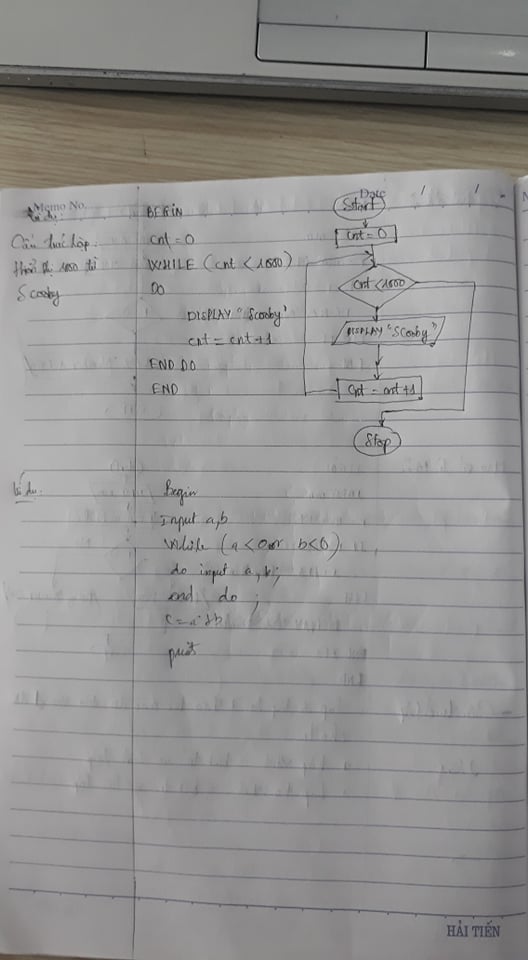 Memo No.
Date / /
Ví dụ:
Cấu trúc lặp:
Hiển thị 1000 từ
Scooby
BEGIN
cnt = 0
WHILE (cnt < 1000)
DO
DISPLAY "Scooby"
cnt = cnt+1
END DO
END
Start
cnt = 0
cnt < 1000
DISPLAY "Scooby"
cnt = cnt +1
Stop
Ví dụ:
Begin
Input a,b
While (a < 0 or b < 0)
do input a, b;
end do ;
print
HẢI TIẾN